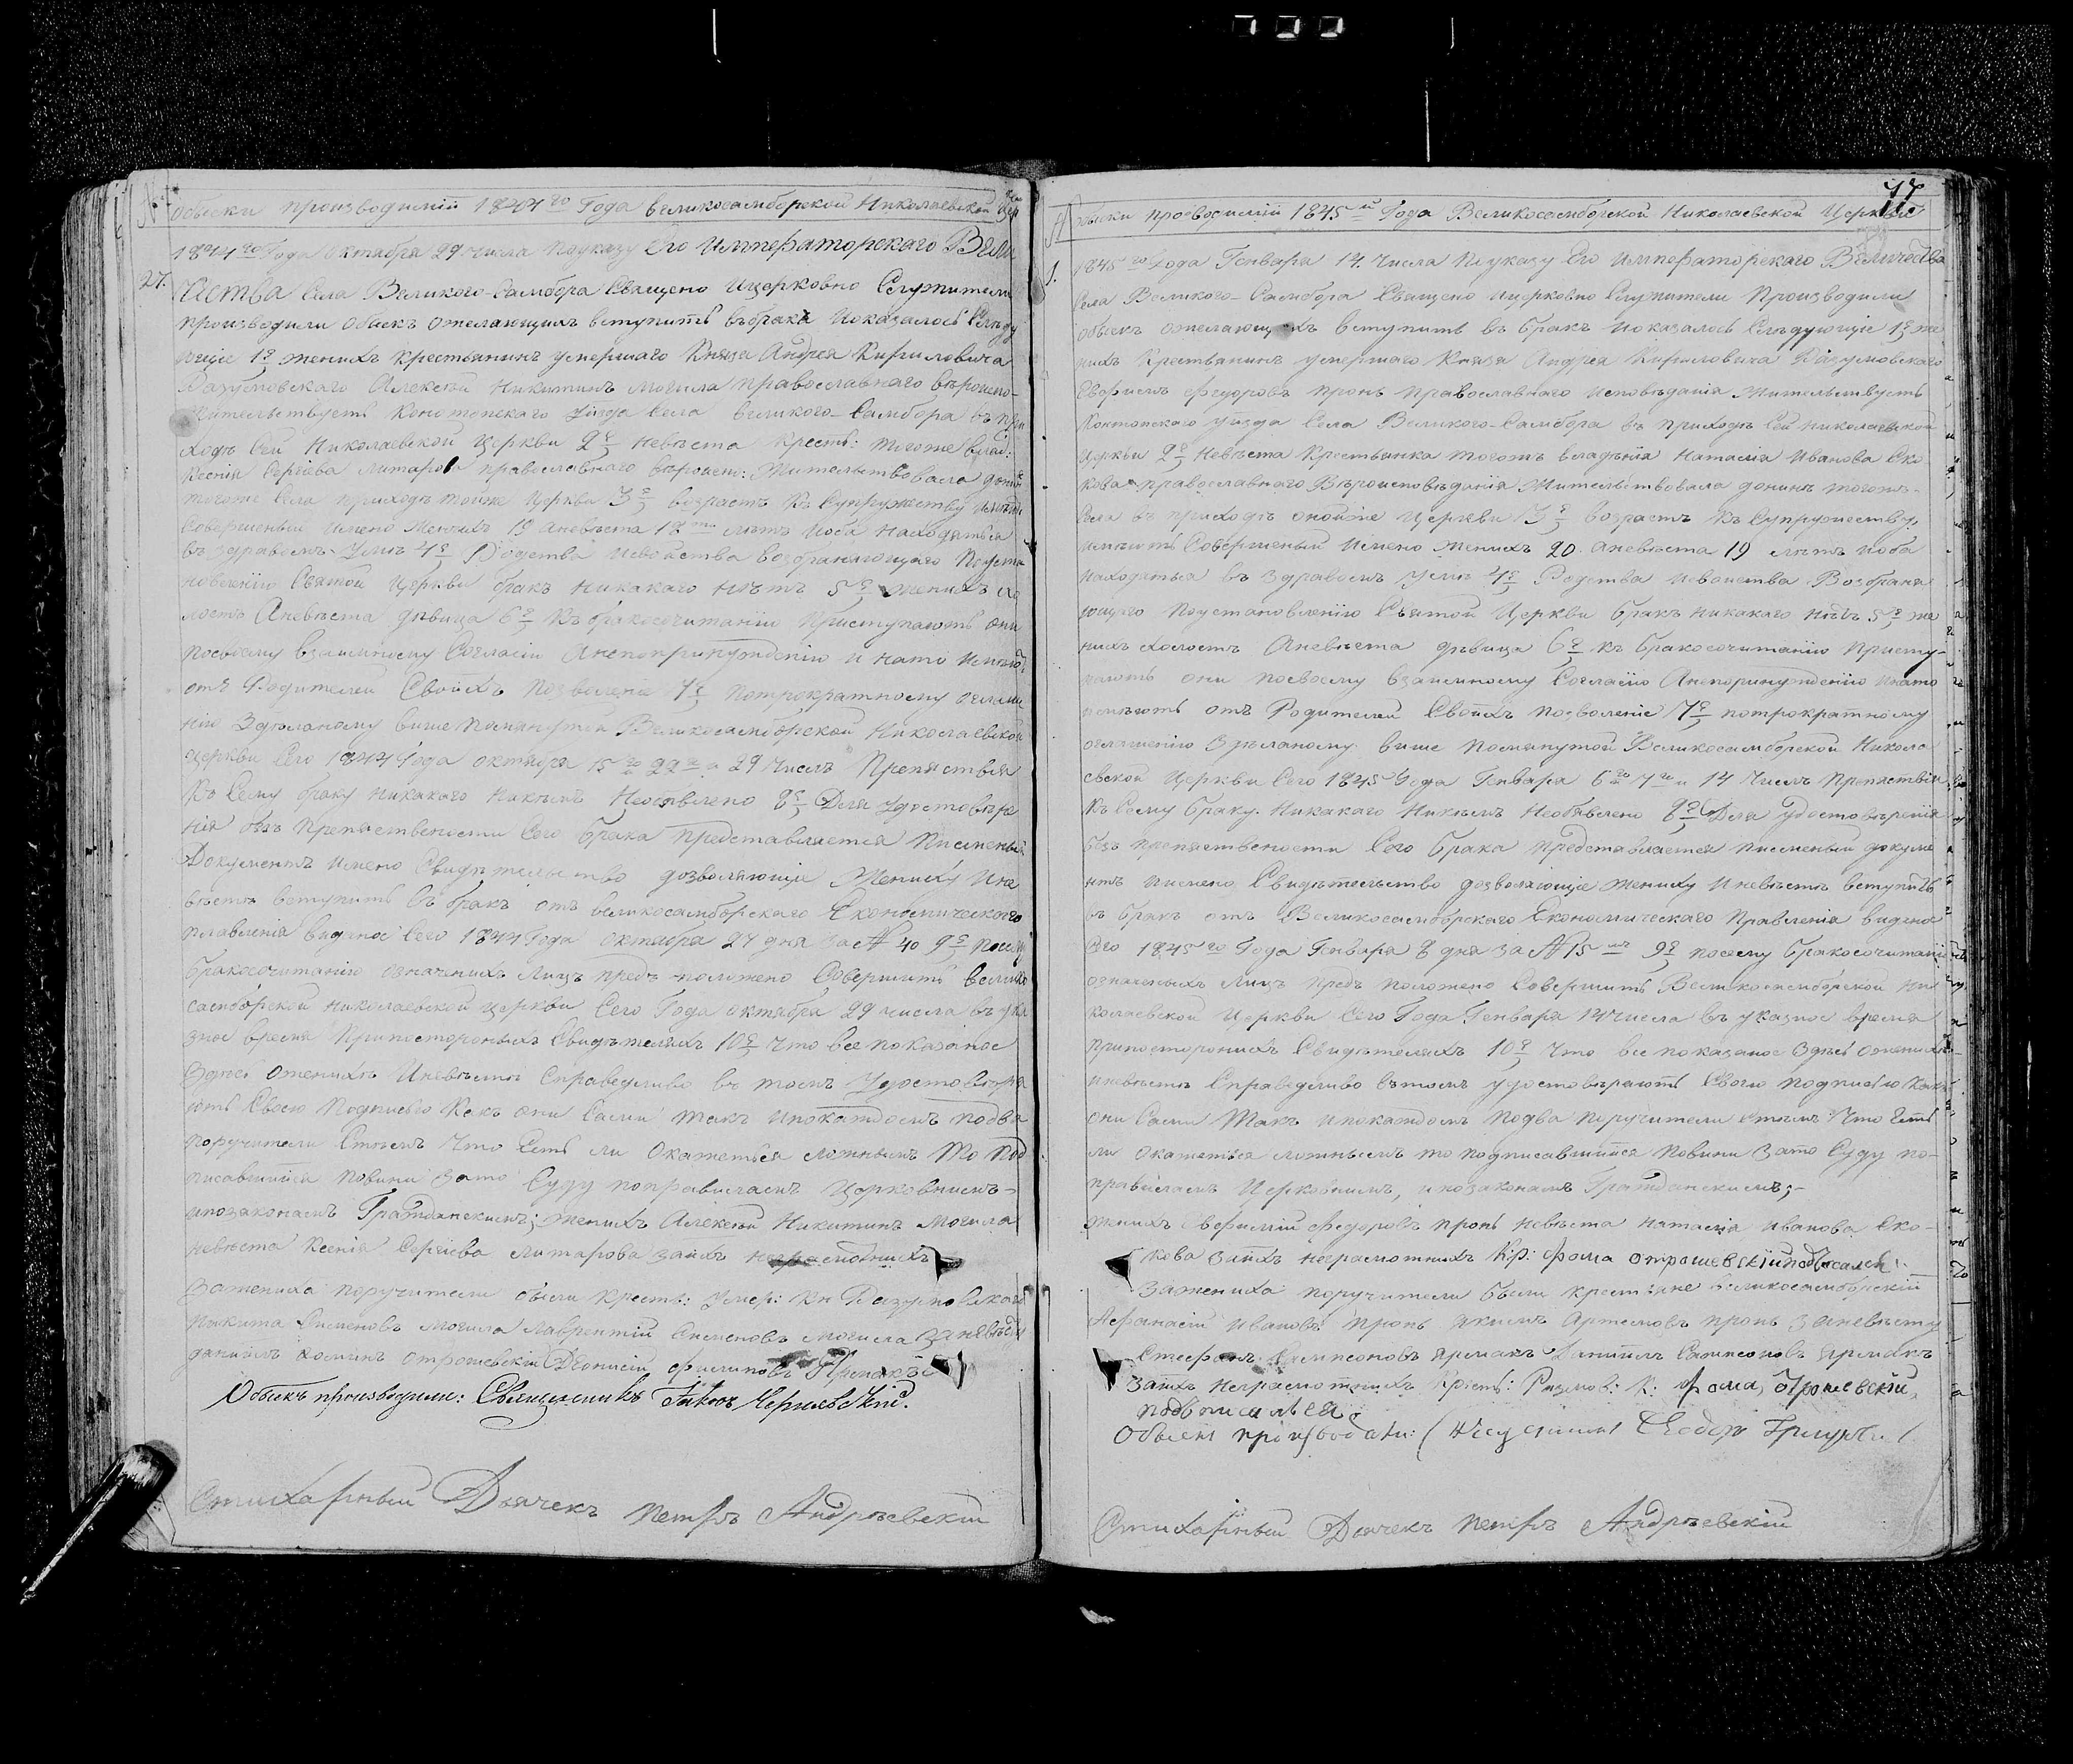 №
Обыски производимій 1844го Года великосамборской Николаевской Цер
27.
1844го Года Октября 29 числа Поуказу Его Императорского Вели
чества Села Великого-Самбора Священо Ицерковно Служители
производили Обыскъ ожелающихъ вступить вбракъ Показалось Слѣду
ющіе 1е женихъ крестьянинъ умершаго Князя Андрея Кириловича
Разумовскаго Алексѣй Никитинъ Могила православнаго вѣроиспо-
Жительствуетъ Конотопскаго Уѣзда Села Великого-Самбора въ при
ходѣ Сей Николаевской Церкви 2е Невѣста крест: тогоже влад:
Ксенія Сергіева Литарова православнаго вѣроиспо: Жительствовала донинѣ
тогоже Села приходѣ тойже Церкви 3е возрастъ къ Супружеству имѣютъ
Совершеный Имено Женихъ 19 Аневѣста 18 лѣтъ Иоба Находяться
въ здравомъ Умѣ 4е Родства Исвойства возбраняющаго Поуста
новленію Святой Церкви бракъ никакаго нѣтъ 5е женихъ хо
лостъ Аневѣста дѣвица 6е къ бракосочитанію Приступаютъ они
Посвоему взаимному Согласію Анепопринужденію и нато имѣют
отъ Родителей Своихъ позволеніе 7е Потрократному оглаше
нію Здѣланому више Помянутой Великосамборской Николаевской
Церкви Сего 1844 Года Октября 15го 22го и 29 Числъ Препяствія
Къ Сему браку никакаго Никѣмъ Необявлено 8е Для Удостовѣре
нія безъ Препяствености Сего брака представляется Писменый
Документъ Имено Свидѣтельство дозволяющіе Жениху Ине
вѣстѣ вступить въ бракъ отъ Великосамборскаго Економическаго
правленія виданое Сего 1844 Года Октября 27 дня За № 40 9е посему
бракосочитанію означеныхъ лицъ предъ положено Совершить велико
самборской Николаевской Церкви Сего Года Октября 29 числа въ ука
зное время Припостороныхъ Свидѣтеляхъ 10е Что все показаное
Здѣсь Оженихѣ Иневѣстѣ Справедливо въ томъ Удостовѣря
ютъ Своею Подписью Какъ они Сами такъ Ипокаждомъ подва
поручители Стѣмъ Что Есть ли Окажеться ложнымъ То Под
писавшійся Повини Зато Суду поправиламъ Церковнимъ-
ипозаконамъ Гражданскимъ; женихъ Алексѣй Никитинъ Могила
невѣста Ксенія Сергіева Литарова заихъ неграмотнихъ
Зажениха поручители были крест: Умер: Кн Разумовскаго
Никита Сименовъ Могила Лаврентій Сименовъ Могила Заневѣсту
Даниилъ Отрошевскій Діонисій Филиповъ Ярмакъ
Обыскъ производили: Священникъ Іаковъ Чернявскій.
Стихарный Дьячекъ Петръ Андріевскій
77
№
Обыски производимій 1845й Года Великосамборской Николаевской Церкви
1.
1845го Года Генваря 14. Числа Поуказу Его Императорскаго Величества
Села Великого-Самбора Священо Ицерковно Служители Производили
обыскъ ожелающихъ вступить въ бракъ Показалось Слѣдующіе 1е же
нихъ Крестьянинъ умершаго Князя Андрея Кириловича Разумовскаго
Евфимъ Федоровъ Пронь Православнаго Исповѣданія Жительствуетъ
Конотопскаго Уѣзда Села Великого-Самбора въ приходѣ Сей Николаевской
Церкви 2е Невѣста Крестьянка тогожъ владѣнія Наталія Иванова Ско
кова православнаго Вѣроисповѣданія Жительствовала донинѣ тогожъ-
Села въ приходѣ онойже Церкви 3е возрастъ Къ Супружеству
имѣютъ Совершеный Имено женихъ 20. аневѣста 19 лѣтъ Иоба
Находяться въ здравомъ Умѣ 4е Родства Исвойства Возбраня
ющаго Поустановленію Святой Церкви бракъ никакаго нѣтъ 5е же
нихъ холостъ Аневѣста дѣвица 6е къ бракосочитанію Присту-
паютъ они посвоему взаимному Согласію Анепопринужденію Инато
имѣютъ отъ Родителей Своихъ позволеніе 7е потрократному
оглашенію Здѣланому више Помянутой Великосамборской Никола
евской Церкви Сего 1845 Года Генваря 6го 7го и 14 Числъ Препяствія
Къ Сему браку Никакаго Никѣмъ Необявлено 8е Для удостовѣренія
безъ препяствености Сего брака представляется писменый докуме
нтъ Имено Свидѣтельство дозволяющіе жениху Иневѣстѣ вступить
въ бракъ отъ Великосамборскаго Економическаго правленія виданое
Сего 1845го Года Генваря 8 дня за № 15 9е посему бракосочитанію
означеныхъ лицъ предъ положено Совершить Великосамборской Ни
колаевской Церкви Сего Года Генваря 14 числа въ указное время
припосторонихъ Свидѣтеляхъ 10е Что все показаное Здѣсь оженихѣ
иневѣстѣ Справедливо вътомъ удостовѣряютъ Своею подписью Какъ
они Сами Такъ Ипокаждомъ подва поручители Стѣмъ Что Есть
ли Окажеться ложнымъ то подписавшійся повини Зато Суду по-
правиламъ Церковнимъ, ипозаконамъ Гражданскимъ;-
Женихъ Евфимій Федоровъ Пронь невѣста Наталія Иванова Ско-
кова заихъ неграмотнихъ Кр: Фома Отрошевскій подписался
Зажениха поручители были крестяне Великосамборскій
Афанасій Ивановъ Пронь Якимъ Артемовъ Пронь Заневѣсту
Стефанъ Сампсоновъ Ярмакъ Даниилъ Сампсоновъ Ярмакъ
Заихъ Неграмотнихъ Крест: Разумов: К: Фома, Отрошевскій,
подписался.
Обыскъ производили: Федоръ
Стихарный Дьячекъ Петръ Андріевскій